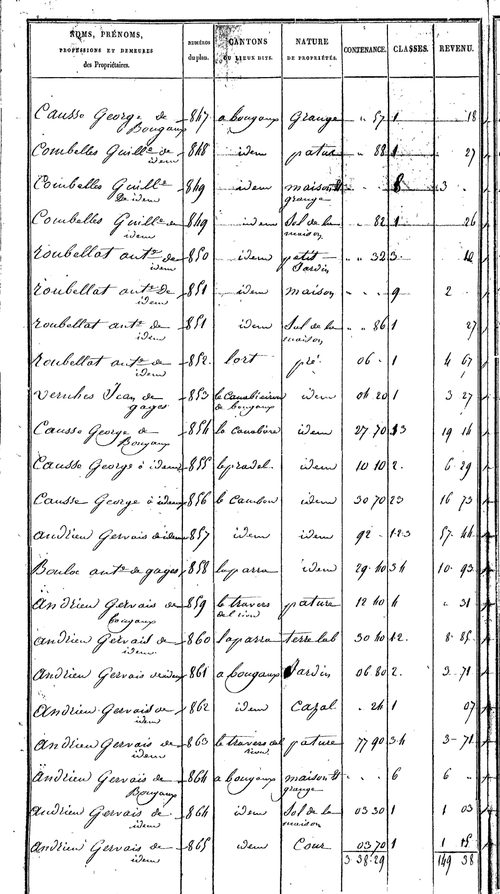 NOMS, PRÉNOMS, PROFESSIONS ET DEMEURES des Propriétaires. NUMÉROS du plan. CANTONS OU LIEUX DITS. NATURE DE PROPRIÉTÉS. CONTENANCE. CLASSES. REVENU.
Causse George de Bougaux 847 a bougaux Grange " " 57 1 18
Combelles Guille de idem 848 idem pature " " 88 1 27
Combelles Guille de idem 849 idem maison et grange 8 3
Combelles Guille de idem 849 idem Sol de la maison " 82 1 26
roubellat ant.e de idem 850 idem petit Jardin " " 32 3
roubellat ant.e de idem 851 idem maison " " " 9 2
roubellat ant.e de idem 851 idem Sol de la maison " " 86 1 27
roubellat ant.e de idem 852 lort pré 06 " 1 4 67
vernhes Jean de gages 853 de bougaux idem 04 20 1 3 27
Causse George de Bougaux 854 la idem 27 70 19 14
Causse George à idem 855 le pradel idem 10 10 2 6 29
Causse George à idem 856 le cambon idem 30 70 23 16 73
andrieu Gervais de idem 857 idem idem 92 " 1-2-3 57 44
Bouloc ant.e de gages 858 la parra idem 29 40 34 10 93
andrieu Gervais de bougaux 859 le travers del riou pature 12 40 4 " 31
andrieu Gervais de idem 860 la parra terre lab 30 80 12 8 85
andrieu Gervais de idem 861 a bougaux Jardin 06 80 2 3 71
andrieu Gervais de idem 862 idem Cazal " 24 1 07
andrieu Gervais de idem 863 le travers del riou pature 77 90 34 3 71
andrieu Gervais de Bougaux 864 a bougaux maison et grange " " " 6 6 "
andrieu Gervais de idem 864 idem Sol de la maison 03 30 1 1 03
andrieu Gervais de idem 865 idem Cour 03 70 1 1 15
3 38 29 149 38